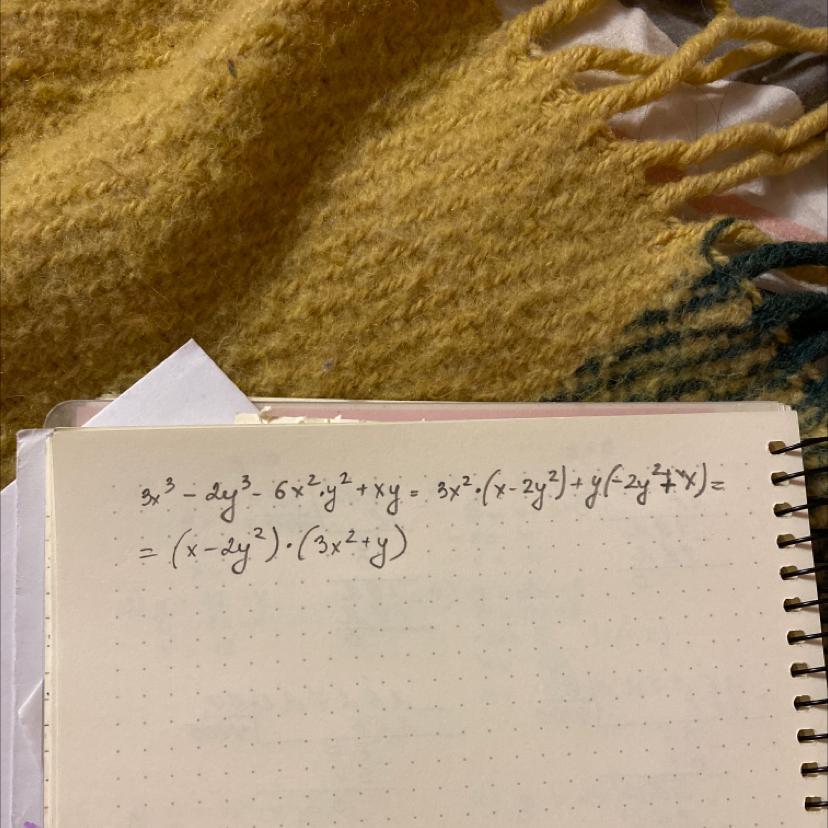 3x³ - 2y³ - 6x²·y² + xy = 3x²·(x - 2y²) + y(-2y² + x) =
= (x - 2y²)·(3x² + y)